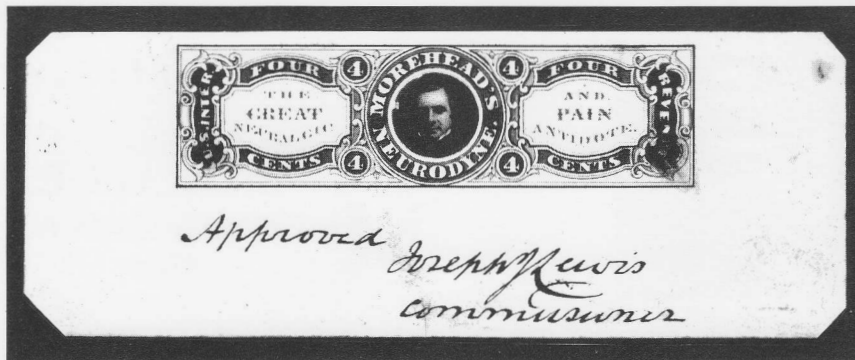 U.S. INTER.
FOUR
CENTS
THE
GREAT
NEURALGIC
4
4
MOREHEAD'S
NEURODYNE.
4
4
FOUR
CENTS
AND
PAIN
ANTIDOTE.
REVENUE
Approved
Joseph J Lewis
Commissioner